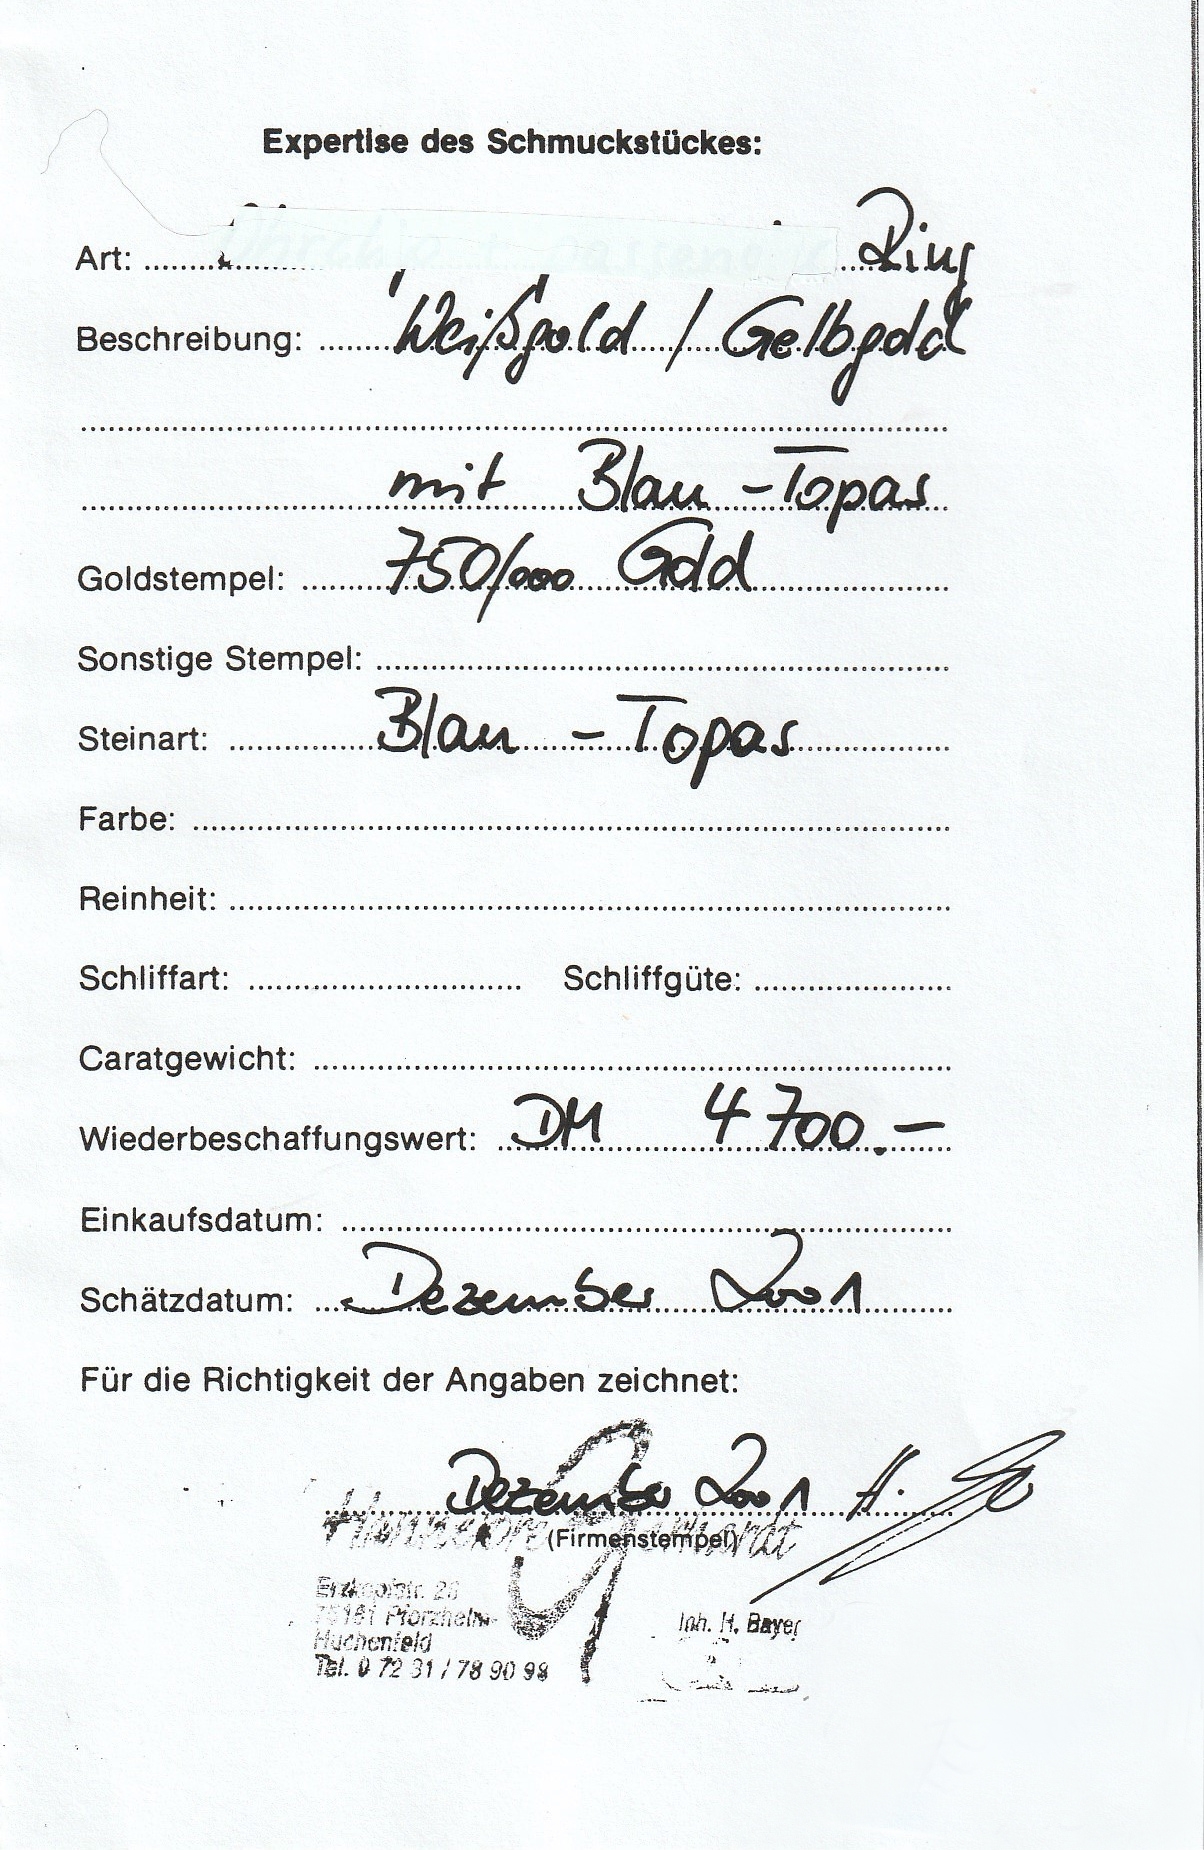 Expertise des Schmuckstückes:
Art: Ring
Beschreibung: Weißgold / Gelbgold
mit Blau-Topas
Goldstempel: 750/000 Gold
Sonstige Stempel:
Steinart: Blau-Topas
Farbe:
Reinheit:
Schliffart: Schliffgüte:
Caratgewicht:
Wiederbeschaffungswert: DM 4700.-
Einkaufsdatum:
Schätzdatum: Dezember 2001
Für die Richtigkeit der Angaben zeichnet:
Dezember 2001
(Firmenstempel)
75181 Pforzheim-
Huchenfeld
Inh. H. Bayer
Tel. 0 72 31 / 78 90 98